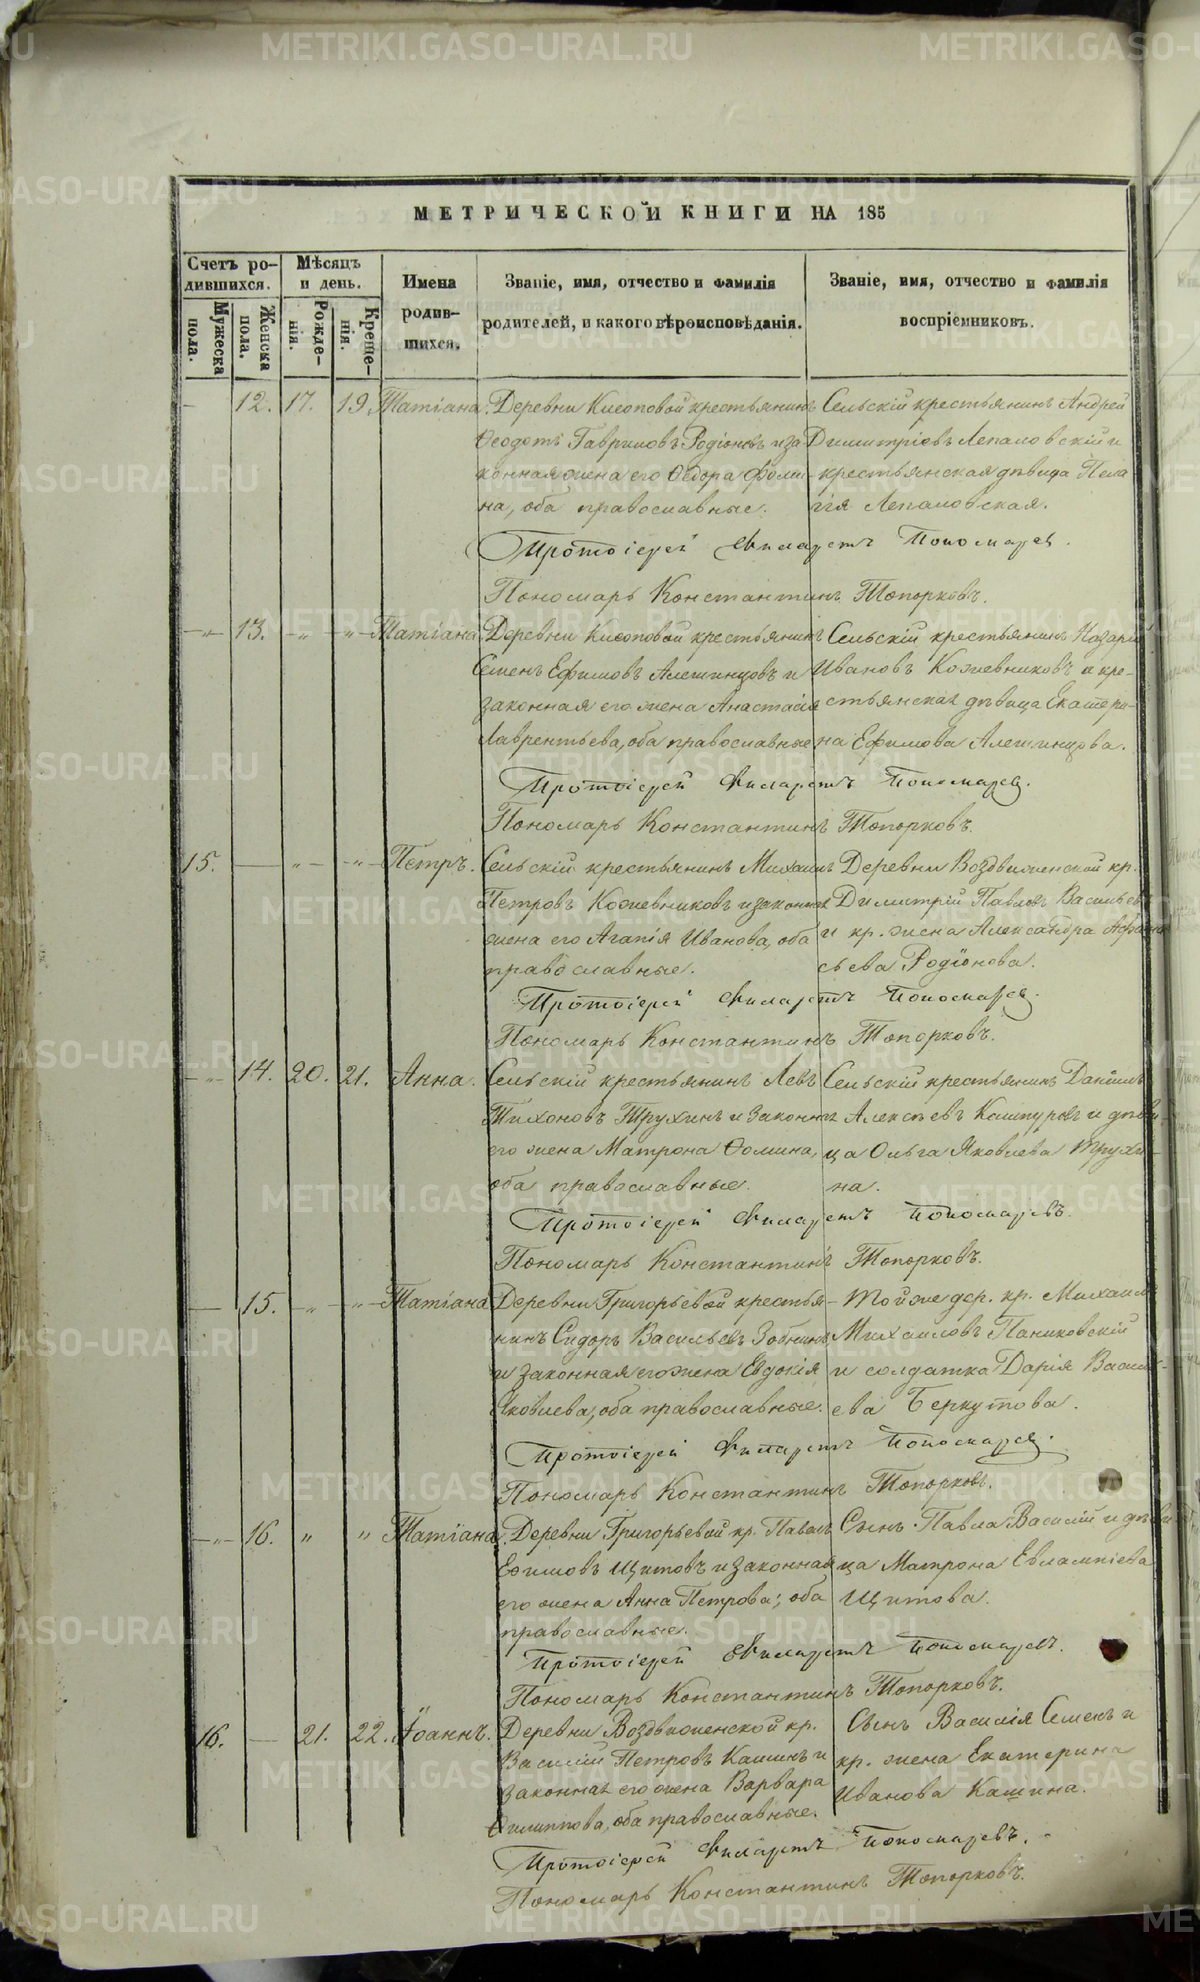 МЕТРИЧЕСКОЙ КНИГИ НА 185
Счетъ ро-
дившихся.
Мѣсяцъ
и день.
Имена
родив-
шихся.
Званіе, имя, отчество и фамилія
родителей, и какого вѣроисповѣданія.
Званіе, имя, отчество и фамилія
воспріемниковъ.
Мужеска
пола.
Женска
пола.
Рожде-
нія.
Креще-
нія.
12. 17. 19. Татіана.
Деревни крестьянинъ
Ѳеодотъ Гавриловъ Родіоновъ и за
конная жена его Ѳедора Ѳоми-
на, оба православные.
Сельскій крестьянинъ Андрей
Димитріевъ Лепаловскій и
крестьянская дѣвица Пела
гія Лепаловская.
Протоіерей Филаретъ Пономарев.
Пономарь Константинъ Топорковъ.
—„— 13. —„— —„— Татіана.
Деревни крестьянинъ
Семенъ Ефимовъ Алешинцовъ и
законная его жена Анастасія
Лаврентьева, оба православные
Сельскій крестьянинъ Назарій
Ивановъ Кожевниковъ и кре-
стьянская дѣвица Екатери-
на Ефимова Алешинцова.
Протоіерей Филаретъ Пономарев.
Пономарь Константинъ Топорковъ.
15. — —„— —„— Петръ.
Сельскій крестьянинъ Михаилъ
Петровъ Кожевниковъ и законная
жена его Агапія Иванова, оба
православные.
Деревни Воздвиженской кр.
Димитрій Павловъ Васильевъ
и кр. жена Александра Афана
сьева Родіонова.
Протоіерей Филаретъ Пономарев.
Пономарь Константинъ Топорковъ.
—„— 14. 20. 21. Анна.
Сельскій крестьянинъ Левъ
Тихоновъ Трухинъ и законная
его жена Матрона Ѳомина,
оба православные.
Сельскій крестьянинъ Даніилъ
Алексѣевъ и дѣви-
ца Ольга Яковлева Трухи-
на.
Протоіерей Филаретъ Пономаревъ.
Пономарь Константинъ Топорковъ.
— 15. —„— —„— Татіана
Деревни Григорьевой крестья-
нинъ Сидоръ Васильевъ Зобнинъ
и законная его жена Евдокія
Яковлева, оба православные.
Той же дер. кр. Михаилъ
Михаиловъ Паниковскій
и солдатка Дарія Василь-
ева Беркутова.
Протоіерей Филаретъ Пономарев.
Пономарь Константинъ Топорковъ.
—„— 16. „ „ Татіана.
Деревни Григорьевой кр. Павелъ
Ефимовъ Щитовъ и законная
его жена Анна Петрова; оба
православные.
Сынъ Павла Василій и дѣви
ца Матрона Евлампіева
Щитова.
Протоіерей Филаретъ Пономаревъ.
Пономарь Константинъ Топорковъ.
16. — 21. 22. Іоаннъ.
Деревни Воздвиженской кр.
Василій Петровъ Кашинъ и
законная его жена Варвара
Филиппова, оба православные.
Сынъ Василія Семенъ и
кр. жена Екатерина
Иванова Кашина.
Протоіерей Филаретъ Пономаревъ.
Пономарь Константинъ Топорковъ.
METRIKI.GASO-URAL.RU